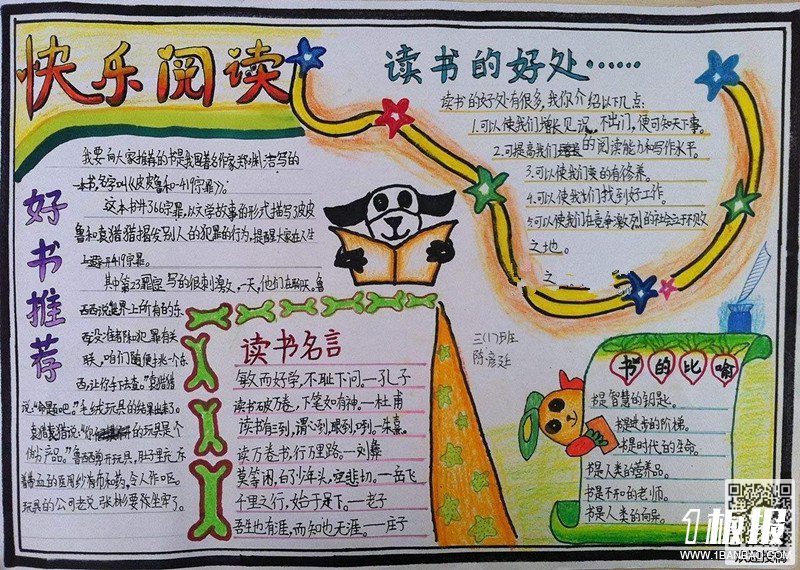 快乐阅读
好书推荐
我要向大家推荐的书是我国著名作家郑渊洁写的
一本书名字叫《皮皮鲁和419宗罪》。
这本书共366宗罪,以文学故事的形式描写了皮皮
鲁和袁猎猎揭发别人的犯罪的行为,提醒大家在人生
上避开419宗罪。
其中第23 写的很刺激,一天,他们在聊天,鲁
西西说世界上所有的东
西没谁和犯罪有关
联,咱们随便挑一个东
西,让你手下去查。"袁猎猎
说:"毛绒玩具的结果出来了。
袁猎猎说:"你 的玩具是个
伪劣产品。"鲁西西剪开玩具,肚子里充斥
着血的医用纱布和药,令人作呕。
玩具的公司老总张彬要张坐牢了。
读书名言
敏而好学,不耻下问。—孔子
读书破万卷,下笔如有神。—杜甫
读书有三到,谓心到眼到,口到。—朱熹
读万卷书,行万里路。—刘彝
莫等闲,白了少年头,空悲切。—岳飞
千里之行,始于足下。—老子
吾生也有涯,而知也无涯。—庄子
读书的好处……
读书的好处有很多,我你介绍以下几点:
1.可以使我们增长见识,不出门,便可知天下事。
2.可提高我们 的阅读能力和写作水平。
3.可以使我们变的有修养。
4.可以使我们找到好工作。
5.可以使我们在竞争激烈的社会立于不败
之地。
之
三(1)班
陈 廷
书的比喻
书是智慧的钥匙。
书是进步的阶梯。
书是时代的生命。
书是人类的营养品。
书是不和的老师。
书是人类的向导。
1板报
WWW.1BANBAO.COM
欢迎投稿